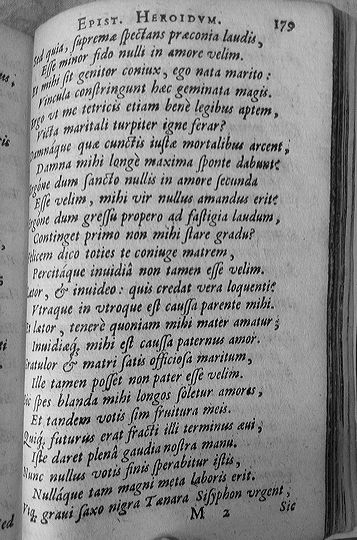 EPIST. HEROIDVM. 179
Sed quia, supremæ spectans præconia laudis,
Esse minor fido nulli in amore velim.
Et mihi sit genitor coniux, ego nata marito:
Vincula constringunt hæc geminata magis.
Ergo vt me tetricis etiam benè legibus aptem,
Victa maritali turpiter igne ferar?
Damnáque quæ cunctis iustæ mortalibus arcent,
Damna mihi longè maxima sponte dabunt?
Ergóne dum sancto nullis in amore secunda
Esse velim, mihi vir nullus amandus erit?
Ergone dum gressu propero ad fastigia laudum,
Continget primo non mihi stare gradu?
Felicem dico toties te coniuge matrem,
Percitáque inuidiâ non tamen esse velim.
Lætor, & inuideo: quis credat vera loquenti?
Vtraque in vtroque est caussa parente mihi.
Et lætor, tenerè quoniam mihi mater amatur;
Inuidiæq́; mihi est caussa paternus amor.
Gratulor & matri satis officiosa maritum,
Ille tamen posset non pater esse velim.
Sic spes blanda mihi longos soletur amores,
Et tandem votis sim fruitura meis.
Quiq́; futurus erat fracti illi terminus æui,
Iste daret plenâ gaudia nostra manu.
Nunc nullus votis finis sperabitur istis,
Nulláque tam magni meta laboris erit.
Vtq́; graui saxo nigra Tænara Sisyphon vrgent,
M 2 Sic